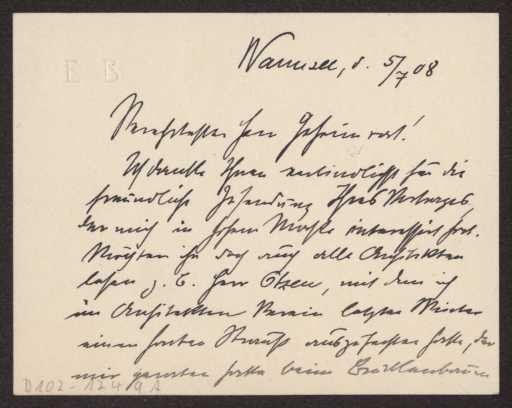 E B
Wannsee, d. 5/7 08
Verehrtester Herr Geheimrat!
Ich danke Ihnen verbindlichst für die
freundliche Zusendung Ihres Vortrages,
der mich in hohem Maße interessirt hat.
Möchten ihn doch auch alle Architekten
lesen z. B. Herr Otzen, mit dem ich
im Architekten Verein letzten Winter
einen harten Strauß ausgefochten hatte, der
mir geraten hatte beim
D102-1249A